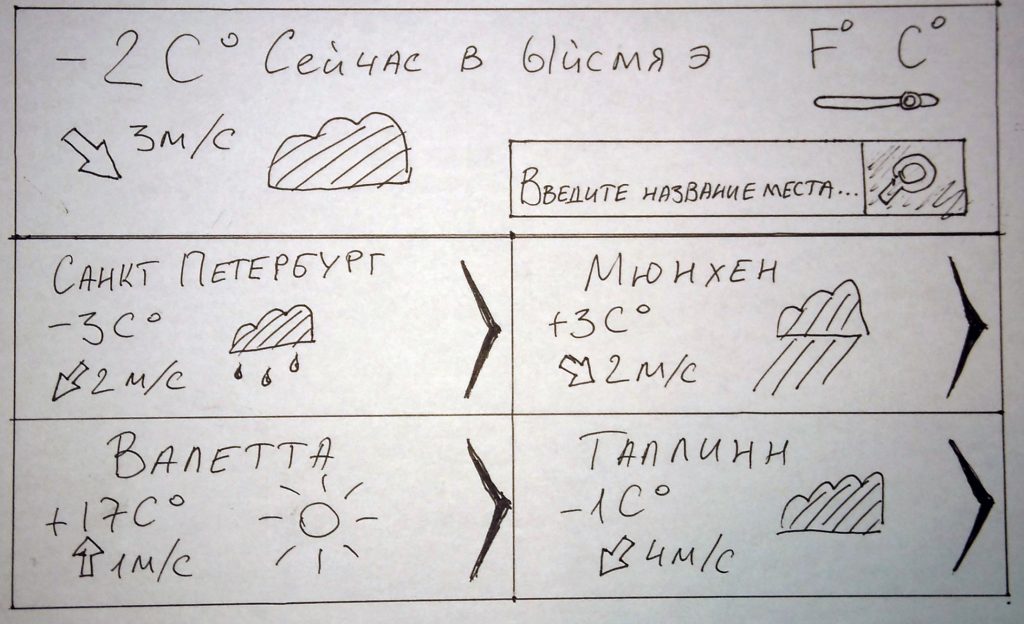 -2 C° Сейчас в Ыйсмяэ
F° C°
3м/с
Введите название места...
Санкт Петербург
-3C°
2 м/с
Мюнхен
+3C°
2 м/с
Валетта
+17C°
1м/с
Таллинн
-1C°
4м/с